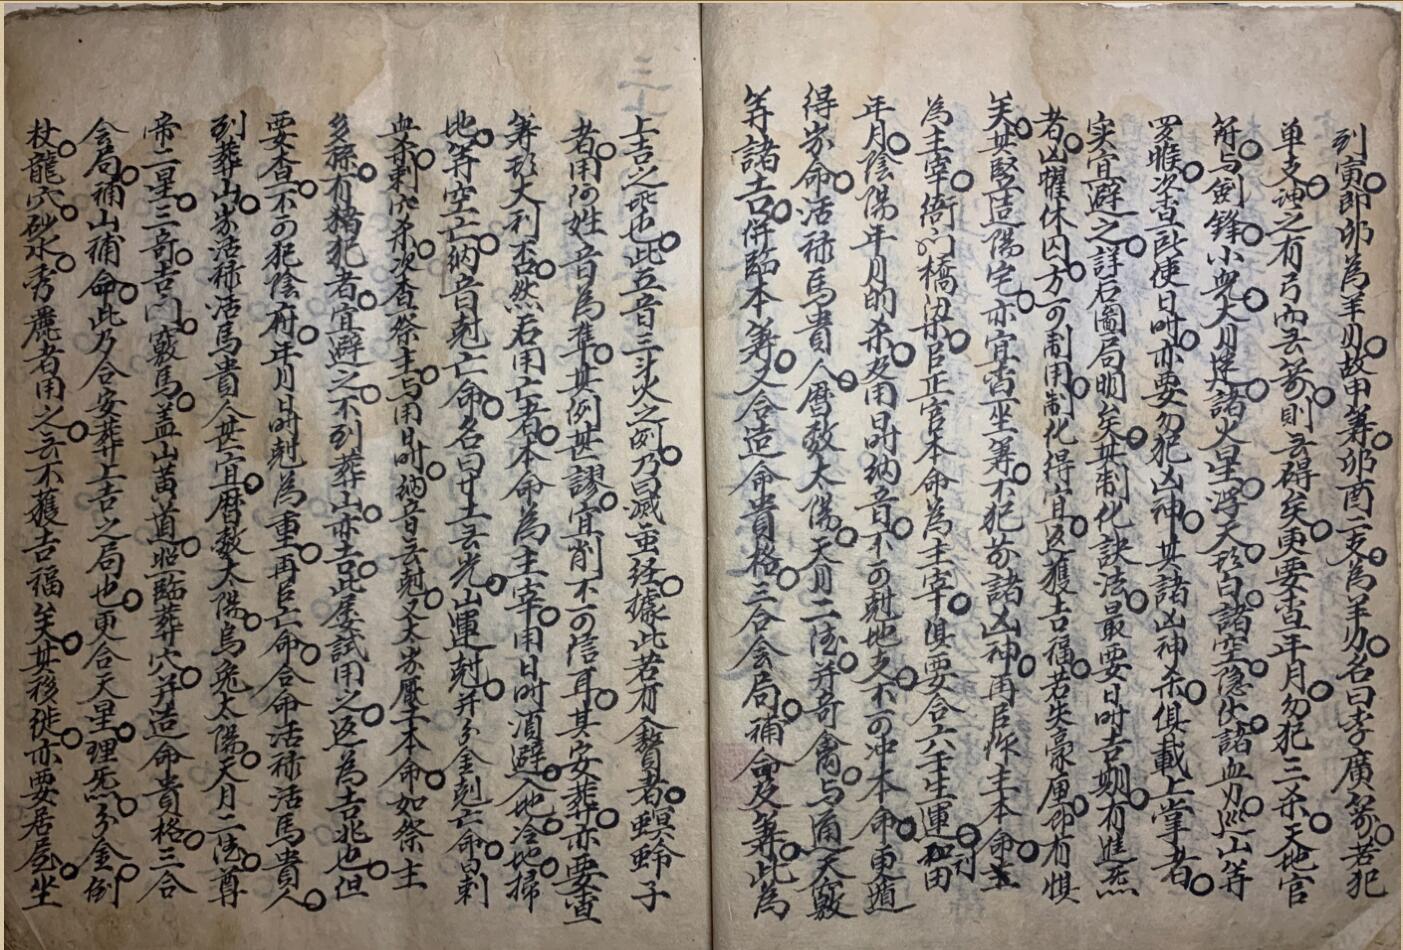 列寅即卯為羊刃故甲筭卯酉二支為羊刃名曰李廣箭若犯
单支神之有弓內无箭則无碍矣更要查年月勿犯三杀天地官
符与劍鋒小兇大月建諸火星浮天形白諸空隐伏諸血刃巡山等
罗㬋次查所使日时亦要勿犯凶神其諸凶神杀俱載上掌者
实宜避之詳后圖局明矣其制化訣法最要日时吉期有進炁
者凶櫂休囚方可制用制化得宜返獲吉福若失豪厘即有惧
矣其竪造陽宅亦宜查坐筭不犯前諸凶神再居作主本命主
為主宰衙门橋梁臣正官本命為主宰俱要合六壬生運刊和田
年月陰陽年月的杀及用日时纳音不可尅地支不可冲本命更遁
得岁命活禄馬貴人曆数太陽天月二德并奇禽与通天竅
筭諸吉併臨本筭又合造命貴格三合会局補命及筭此為
三七
上吉之課也此五音三斗火之例乃曰滅蛮经據此若有入贅者螟蛉子
者用何姓音為準其例甚謬宜削不可信耳其安葬亦要查
筭形大利否然后用亡者本命為主宰用日时湏避入地冷地掃
地等空亡纳音尅亡命名曰廿土无光山運尅并分金尅亡命曰剥
血剥穴杀次查祭主与用日时纳音无尅又太岁壓本命如祭主
多孫有犯者宜避之不列葬山亦吉此屡試用之返為吉兆也但
要查不可犯陰府年月日时尅為重再合亡命合命活禄活馬貴人
列葬山岁活禄活馬貴人甚宜曆数太陽烏兔太陽天月二德尊
帝二星三奇吉门竅馬盖山黄道照臨葬穴并造命貴格三合
会局補山補命此乃合安葬上吉之局也更合天星理炁分金倒
杖龍穴砂水秀麗者用之无不獲吉福矣其移徙亦要居屋坐